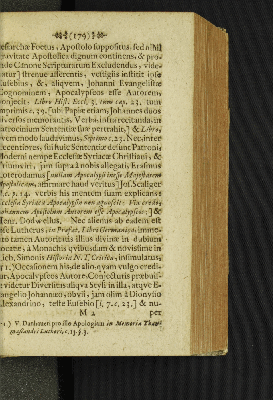 (179)
Foetus, Apostolo suppositus, sed nil
gravitate Apostolica dignum continens, & pro-
Canone Scripturarum Excludendus, vide-
threnne afferentis, vestigiis institit ipse
Eusebius, & aliquem, Johanni Evangelistæ
Cognominem, Apocalypseos esse Autorem,
conjecit, Libro Hist. Eccl. 3. cum cap. 23. tum
c. 39. sub Papiæ etiam, Johannes duos
diversos memorantis. Verba infra recitanda in
patrocinium Sententiæ suæ pertrahit,] & Libro,
quem modo laudavimus, Septimo c. 23. Nec inter
recentiores, sui huic Sententiæ desunt Patroni,
Moderni nempe Ecclesiæ Syriacæ Christiani, &
jam supra à nobis allegati, Erasmus
Roterodamus
affirmare haud veritus] Jos. Scaliger
verbis his mentem suam explicans:
Ecclesia Syriaca Apocalypsin non agnoscit. Vix credo,
Johannem Apostolum Autorem esse Apocalypseos;] &
Henr. Dodwellus. Nec alienus ab eadem est
ipse Lutherus, in Præfat. Libro Germanico, immo
to tamen Autoritatis illius divinæ in dubium
vocatæ, à Monachis quibusdam & novissime in
lich, Simonis Historia N. T. Critica, insimulatus,
Occasionem his de alioquam vulgo credi-
tur, Apocalypseos Autore Conjecturis præbuis-
se videtur Diversitas aliqua Styli in illa, atque E-
vangelio Johanneo, obvii, jam olim à Dionysio
Alexandrino, teste Eusebio [l. 7. c. 23,] nu-
M 2
per
V. Danhauer pro illo Apologiam in Memoria Thau-
masiandri Lutheri, c. 13. §. 3.